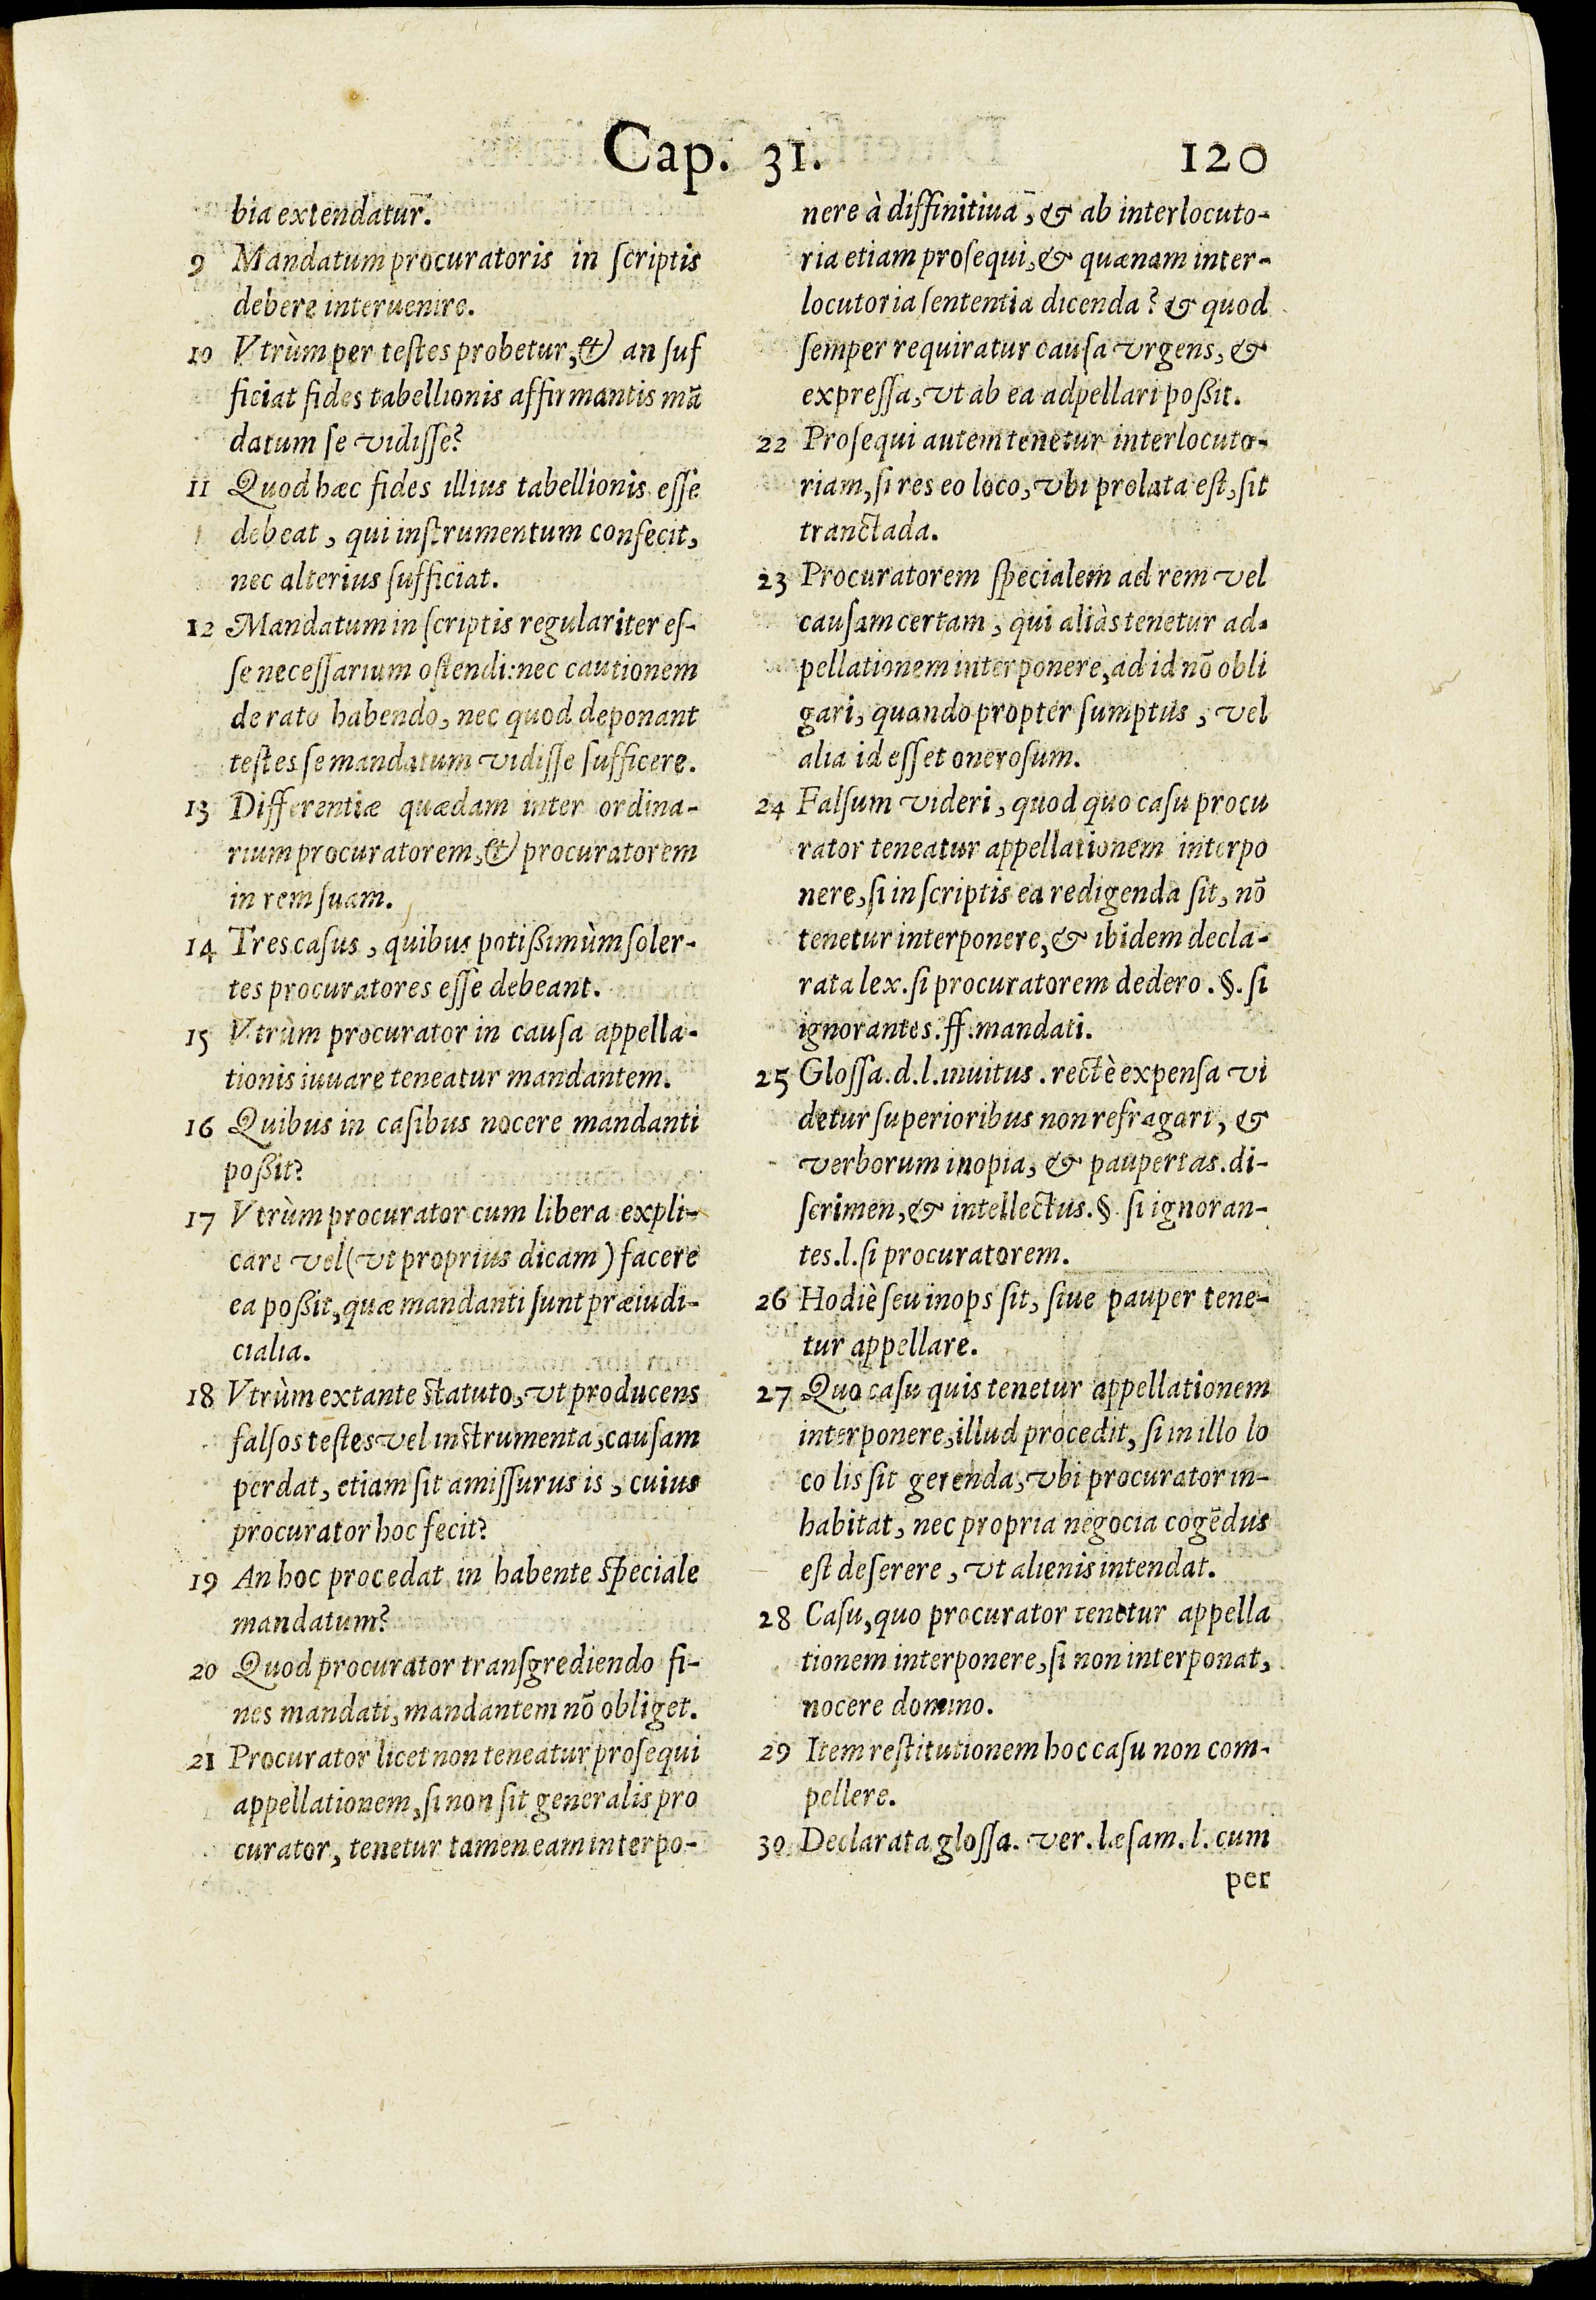 Cap. 31. 120
bia extendatur.
9 Mandatum procuratoris in ſcriptis
debere interuenire.
10 Vtrùm per teſtes probetur, & an ſuf
ficiat fides tabellionis affirmantis mā
datum ſe vidiſſe?
11 Quod hæc fides illius tabellionis eſſe
debeat, qui inſtrumentum confecit,
nec alterius ſufficiat.
12 Mandatum in ſcriptis regulariter eſ-
ſe neceſſarium oſtendi: nec cautionem
de rato habendo, nec quod deponant
teſtes ſe mandatum vidiſſe ſufficere.
13 Differentiæ quædam inter ordina-
rium procuratorem, & procuratorem
in rem ſuam.
14 Tres caſus, quibus potißimùm ſoler-
tes procuratores eſſe debeant.
15 Vtrùm procurator in cauſa appella-
tionis iuuare teneatur mandantem.
16 Quibus in caſibus nocere mandanti
poßit?
17 Vtrùm procurator cum libera expli-
care vel (vt proprius dicam) facere
ea poßit, quæ mandanti ſunt præiudi-
cialia.
18 Vtrùm extante ſtatuto, vt producens
falſos teſtes vel inſtrumenta, cauſam
perdat, etiam ſit amiſſurus is, cuius
procurator hoc fecit?
19 An hoc procedat in habente ſpeciale
mandatum?
20 Quod procurator tranſgrediendo fi-
nes mandati, mandantem nō obliget.
21 Procurator licet non teneatur proſequi
appellationem, ſi non ſit generalis pro
curator, tenetur tamen eam interpo-
nere à diffinitiua, & ab interlocuto-
ria etiam proſequi, & quænam inter-
locutoria ſententia dicenda? & quod
ſemper requiratur cauſa vrgens, &
expreſſa, vt ab ea adpellari poßit.
22 Proſequi autem tenetur interlocuto-
riam, ſi res eo loco, vbi prolata eſt, ſit
tranctada.
23 Procuratorem ſpecialem ad rem vel
cauſam certam, qui aliàs tenetur ad-
pellationem interponere, ad id nō obli
gari, quando propter ſumptus, vel
alia id eſſet oneroſum.
24 Falſum videri, quod quo caſu procu
rator teneatur appellationem interpo
nere, ſi in ſcriptis ea redigenda ſit, nō
tenetur interponere, & ibidem decla-
rata lex. ſi procuratorem dedero. §. ſi
ignorantes. ff. mandati.
25 Gloſſa. d. l. inuitus. rectè expenſa vi
detur ſuperioribus non refragari, &
verborum inopia, & paupertas. di-
ſcrimen, & intellectus. §. ſi ignoran-
tes. l. ſi procuratorem.
26 Hodiè ſeu inops ſit, ſiue pauper tene-
tur appellare.
27 Quo caſu quis tenetur appellationem
interponere, illud procedit, ſi in illo lo
co lis ſit gerenda, vbi procurator in-
habitat, nec propria negocia cogēdus
eſt deſerere, vt alienis intendat.
28 Caſu, quo procurator tenetur appella
tionem interponere, ſi non interponat,
nocere domino.
29 Item reſtitutionem hoc caſu non com-
pellere.
30 Declarata gloſſa. ver. læſam. l. cum
per